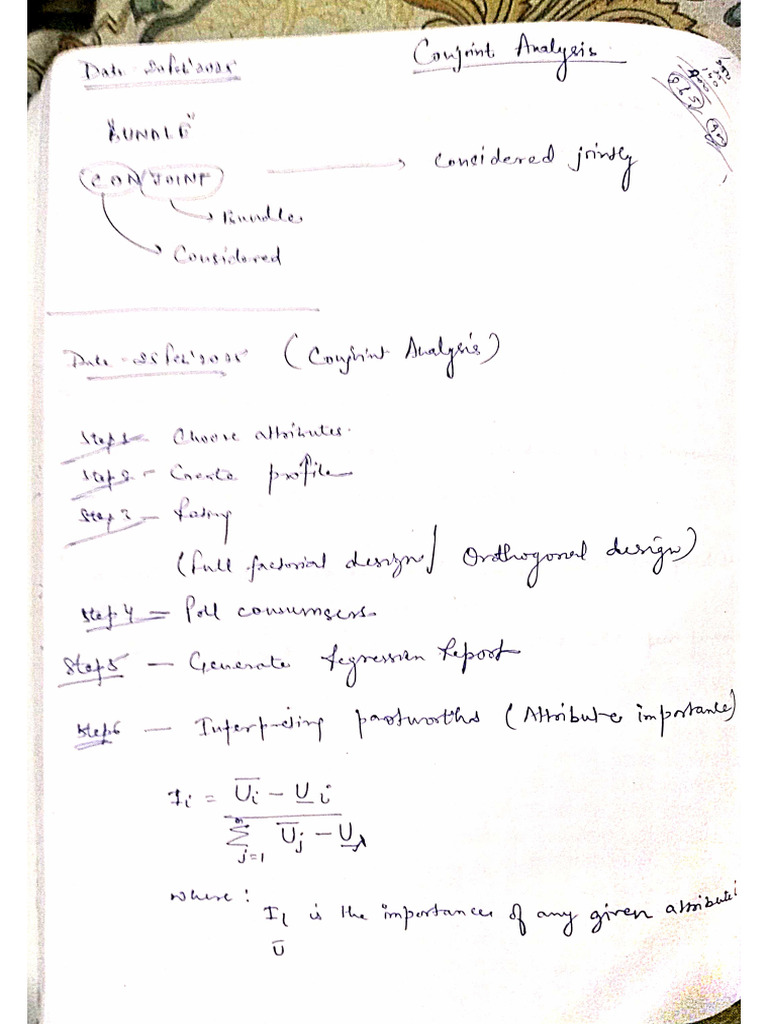 Conjoint Analysis
Date
"BUNDLE"
CON JOINT → Considered jointly
Bundle
Considered
Date - 25 Feb'2025 (Conjoint Analysis)
Step 1 - Choose attributes.
Step 2 - Create profile
Step 3 -
(Full factorial design / Orthogonal design)
Step 4 = Poll consumsers.
Step 5 - Generate regression report
Step 6 - Interpreting partworths (Attribute importance)
Ii = U̅i - U̲i / ∑ j=1 n U̅j - U̲j
where: Ii is the importances of any given attribute i
U̅